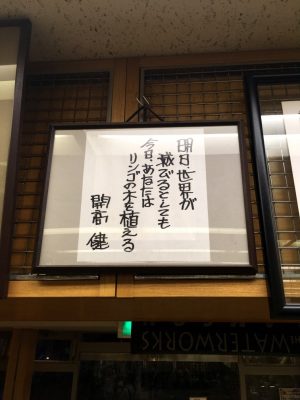 明日、世界が
滅びるとしても
今日、あなたは
リンゴの木を植える
開高健
WATERWORKS